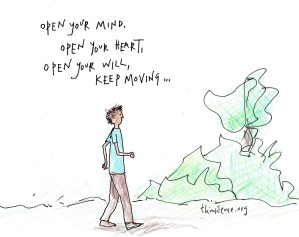 OPEN YOUR MIND.
OPEN YOUR HEART,
OPEN YOUR WILL,
KEEP MOVING...